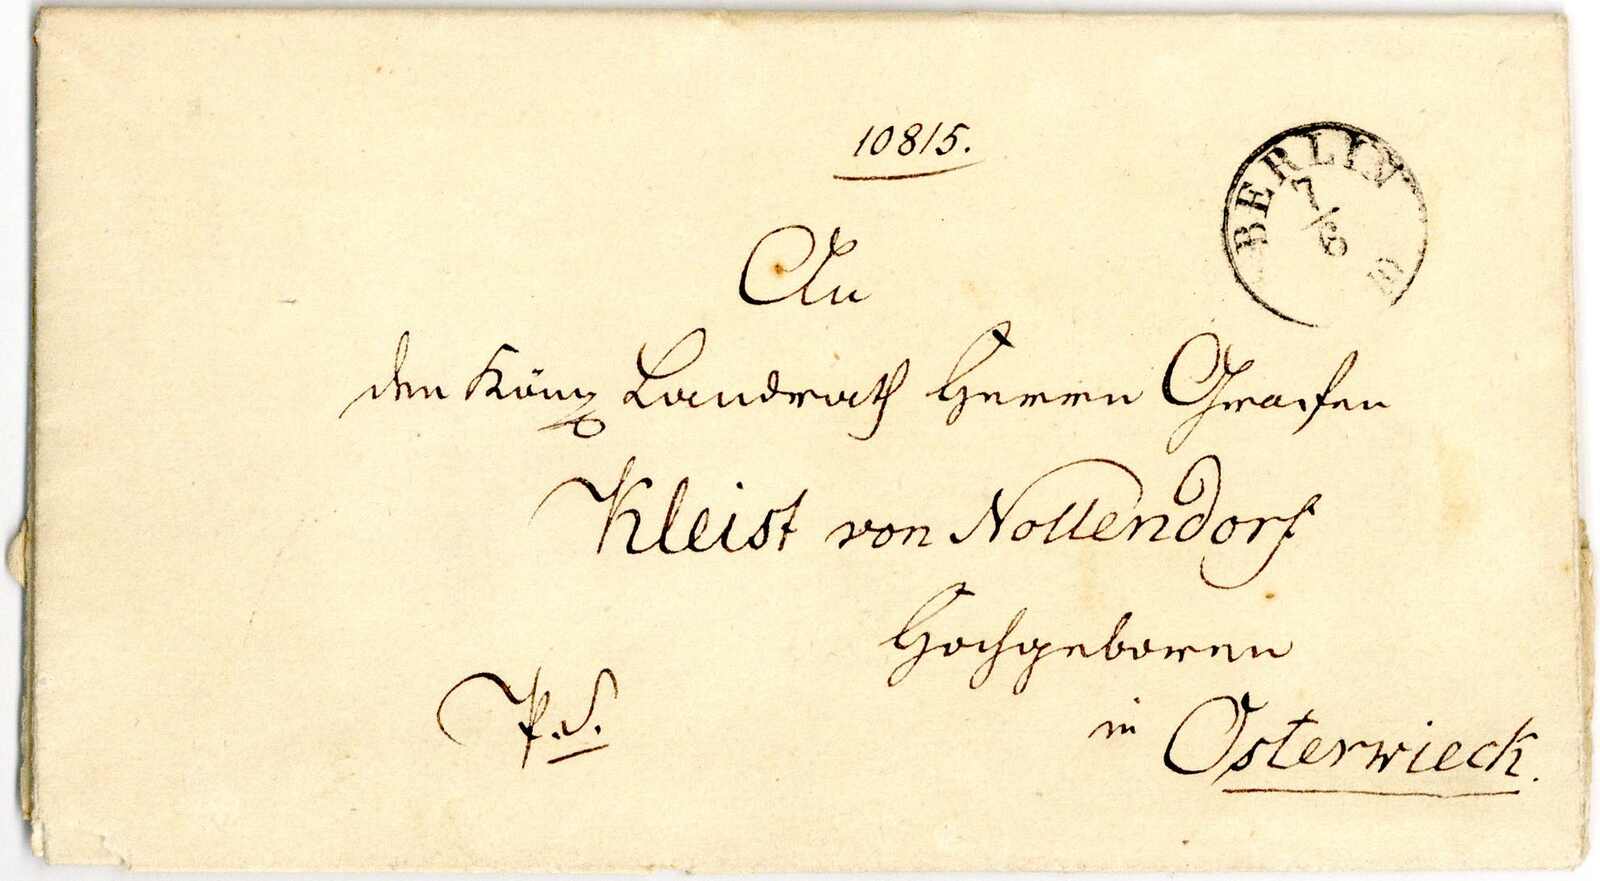 10815.
BERLIN
7/6
An
den Königl Landrath Herrn Grafen
Kleist von Nollendorf
Hochgeboren
in Osterwieck.